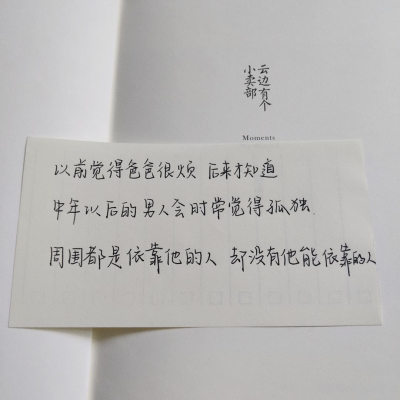 云边有个
小卖部
Moments
以前觉得爸爸很烦 后来才知道
中年以后的男人会时常觉得孤独
周围都是依靠他的人 却没有他能依靠的人